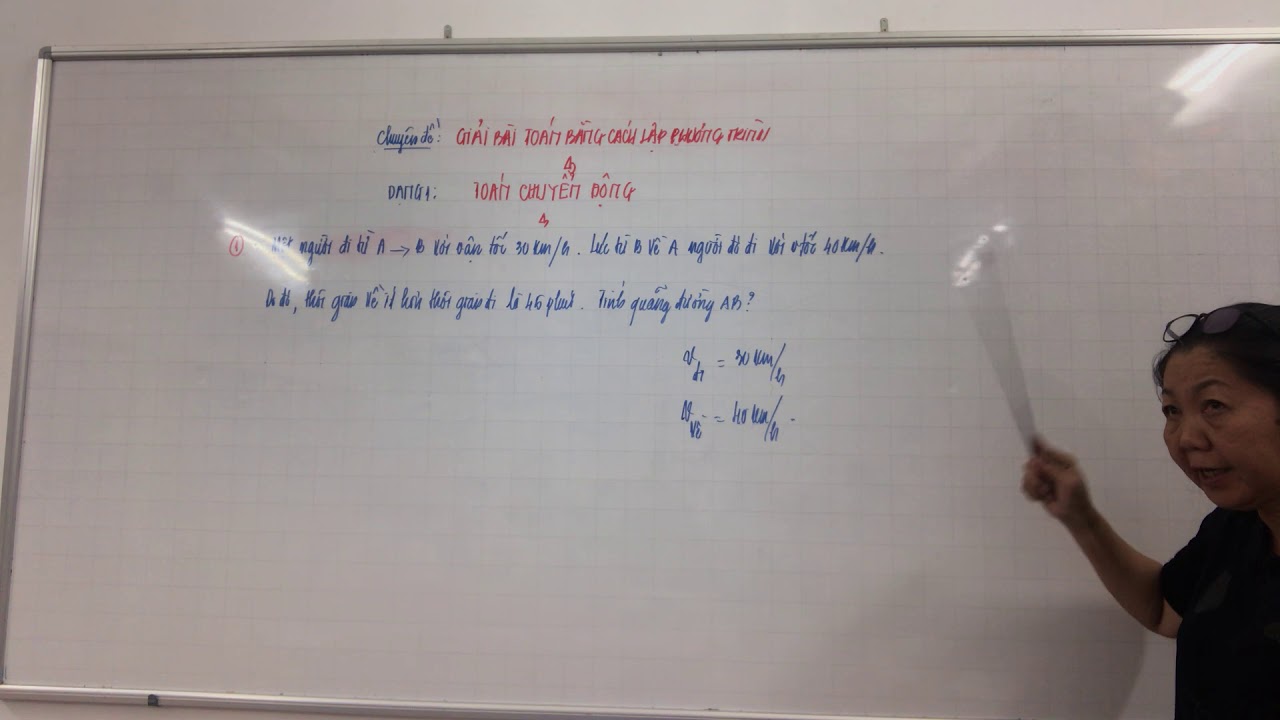 Chuyên đề: GIẢI BÀI TOÁN BẰNG CÁCH LẬP PHƯƠNG TRÌNH
DẠNG 1: TOÁN CHUYỂN ĐỘNG
① Một người đi từ A → B với vận tốc 30 km/h. Lúc từ B về A người đó đi với vtốc 40 km/h.
Do đó, thời gian về ít hơn thời gian đi là 45 phút. Tính quãng đường AB?
v đi = 30 km/h
v về = 40 km/h